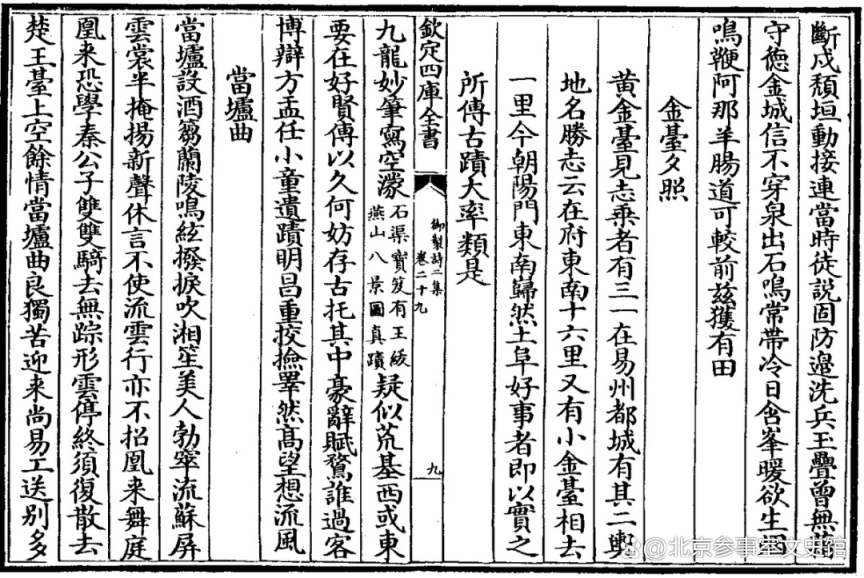 斷戍頹垣動接連當時徒説固防邉洗兵玉疊曾無
守德金城信不穿泉出石鳴常帶冷日含峯暖欲生烟
鳴鞭阿那羊腸道可較前兹獲有田
金臺夕照
黄金臺見志乗者有三一在易州都城有其二輿
地名勝志云在府東南十六里又有小金臺相去
一里今朝陽門東南巋然土阜好事者即以實之
所傳古蹟大率類是
欽定四庫全書
御製詩二集
卷二十九
九
九龍妙筆寫空濛石渠寳笈有王紱燕山八景圖真蹟疑似荒基西或東
要在好賢傳以久何妨存古托其中豪辭賦鶩誰過客
博辯方盂任小童遺蹟明昌重挍撿睪然髙望想流風
當壚曲
當壚設酒芻蘭陵鳴絃撥捩吹湘笙美人勃窣流蘇屏
雲裳半掩揚新聲休言不使流雲行亦不招凰来舞庭
凰来恐學秦公子雙雙騎去無踪形雲停終須復散去
楚王臺上空餘情當壚曲良獨苦迎来尚易工送别多
@北京参事室文史馆